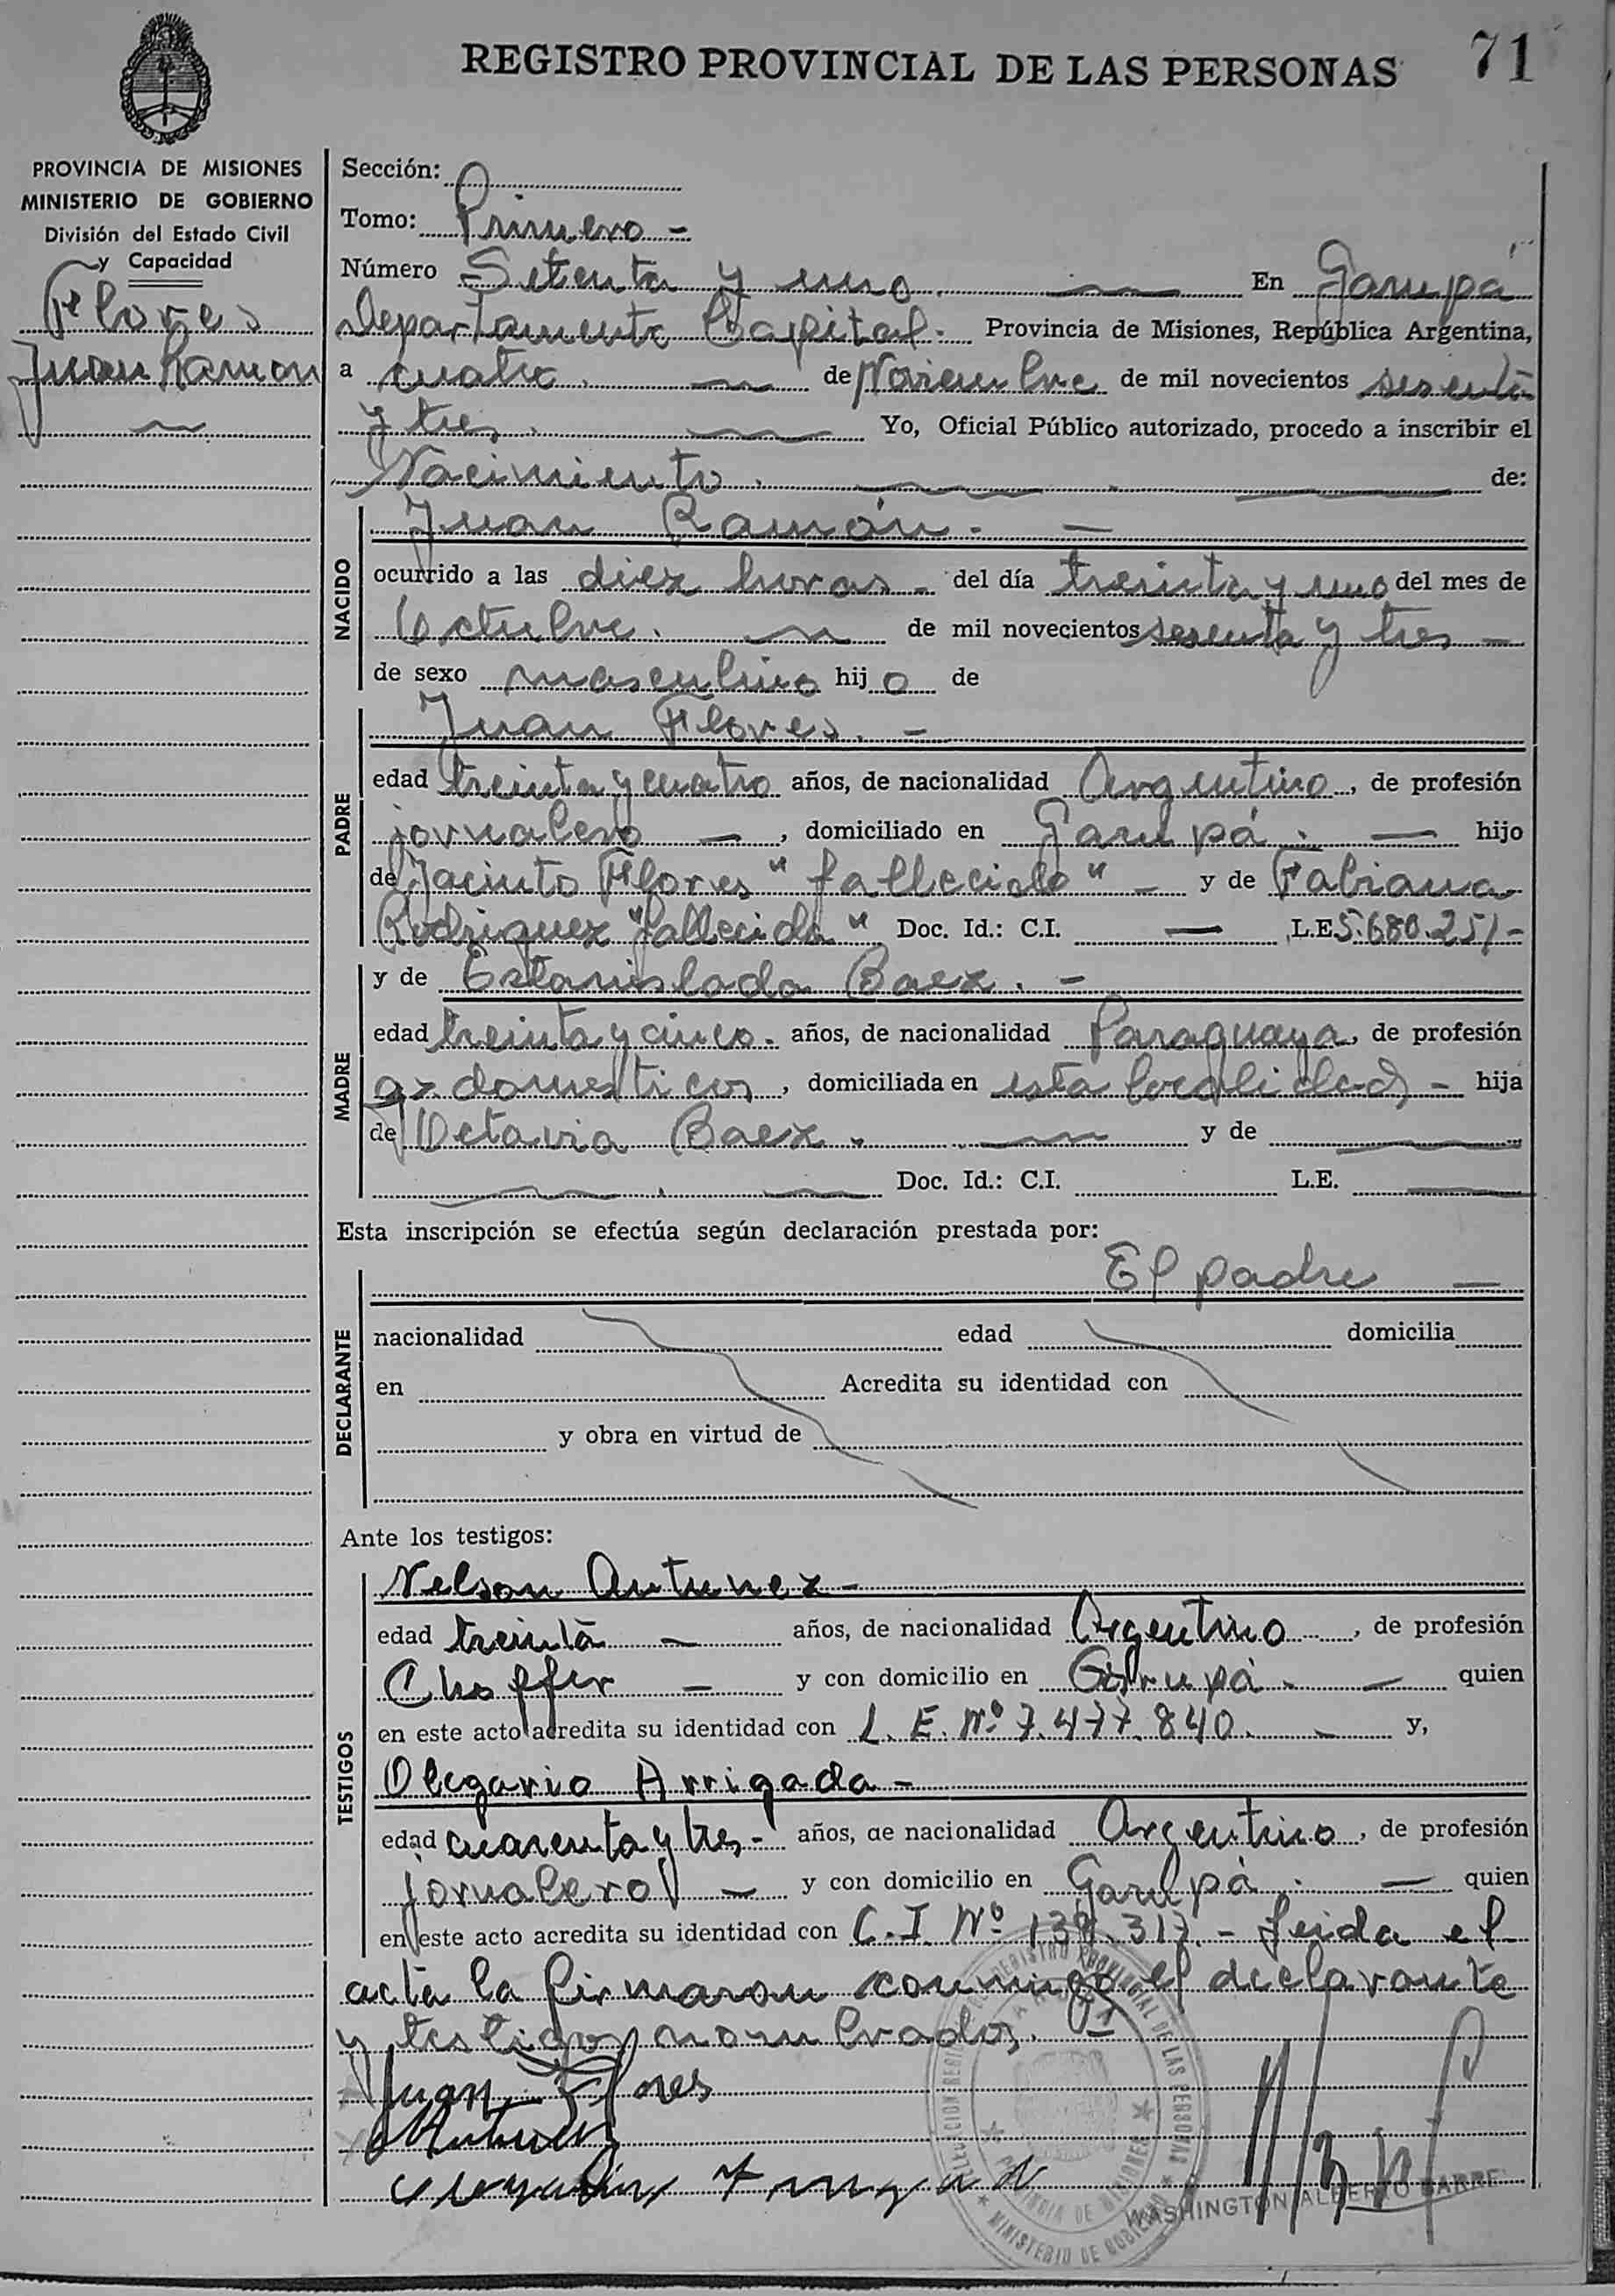 REGISTRO PROVINCIAL DE LAS PERSONAS 71
PROVINCIA DE MISIONES
MINISTERIO DE GOBIERNO
División del Estado Civil
y Capacidad
Flores
Juan Ramon
Sección:
Tomo: Primero -
Número Setenta y uno. En Garupá
Departamento Capital. Provincia de Misiones, República Argentina,
a cuatro. de Noviembre de mil novecientos sesenta
y tres. Yo, Oficial Público autorizado, procedo a inscribir el
Nacimiento. de:
NACIDO
Juan Ramón. -
ocurrido a las diez horas - del día treinta y uno del mes de
Octubre. de mil novecientos sesenta y tres -
de sexo masculino hijo de
PADRE
Juan Flores. -
edad treinta y cuatro años, de nacionalidad Argentino, de profesión
jornalero -, domiciliado en Garupá. - hijo
de Jacinto Flores "fallecido" - y de Fabiana
Rodriguez "fallecida" Doc. Id.: C.I. - L.E. 5.680.251-
MADRE
y de Estanislada Baez. -
edad treinta y cinco. años, de nacionalidad Paraguaya, de profesión
qz domesticos, domiciliada en esta localidad - hija
de Octavia Baez. y de
Doc. Id.: C.I. L.E.
Esta inscripción se efectúa según declaración prestada por:
DECLARANTE
El padre -
nacionalidad edad domicilia
en Acredita su identidad con
y obra en virtud de
Ante los testigos:
TESTIGOS
Nelson Antunez -
edad treinta - años, de nacionalidad Argentino, de profesión
Choffer - y con domicilio en Garupá. - quien
en este acto acredita su identidad con L.E. Nº 7.477.840. - y,
Olegario Arrigada -
edad cuarenta y tres - años, de nacionalidad Argentino, de profesión
jornalero - y con domicilio en Garupá. - quien
en este acto acredita su identidad con C.I. Nº 138.317. - Leida el
acta la firmaron conmigo el declarante
y testigos nombrados. -
Juan Flores
Antunez
WASHINGTON ALBERTO BARRE
REGISTRO PROVINCIAL DE LAS PERSONAS
PROVINCIA DE MISIONES
MINISTERIO DE GOBIERNO